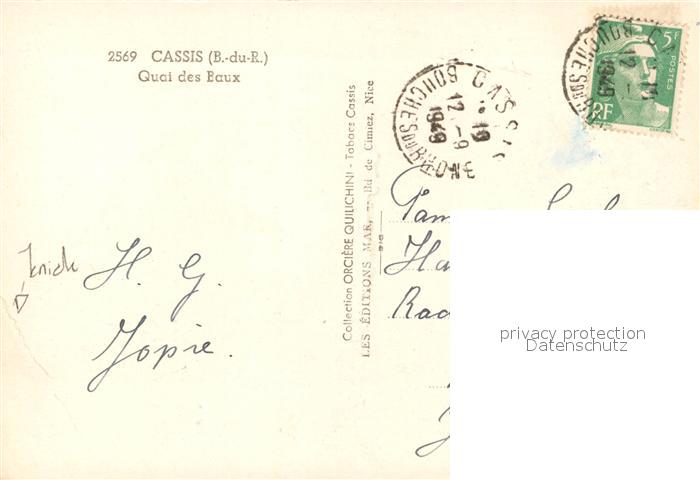 2569 CASSIS (B.-du-R.)
Quai des Baux
H. G.
Jopie.
Collection ORCIÈRE QUILICHINI - Tabacs Cassis
LES ÉDITIONS MAR, de Cimiez, Nice
CASSIS
19
12 -9
1949
BOUCHES DU RHONE
12
1949
BOUCHES DU
5F
POSTES
RF
Fam
Ha
Rad
privacy protection
Datenschutz